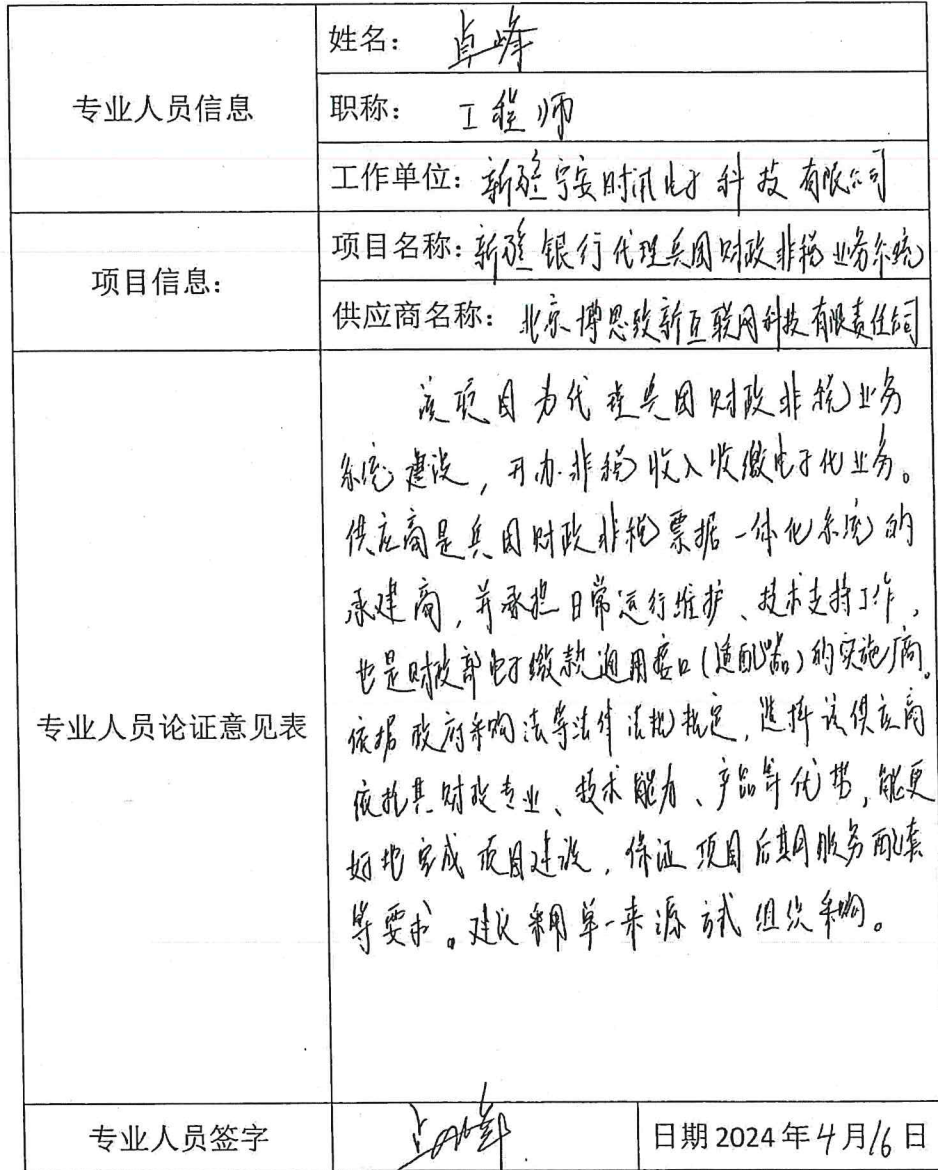 专业人员信息
姓名：卓峰
职称：工程师
工作单位：新疆宁安时讯电子科技有限公司
项目信息：
项目名称：新疆银行代理兵团财政非税业务系统
供应商名称：北京博思致新互联网科技有限责任公司
专业人员论证意见表
该项目为代理兵团财政非税业务
系统建设，开办非税收入收缴电子化业务。
供应商是兵团财政非税票据一体化系统的
承建商，并承担日常运行维护、技术支持工作，
也是财政部电子缴款通用接口（适配器）的实施厂商。
依据政府采购法等法律法规规定，选择该供应商
依托其财政专业、技术能力、产品等优势，能更
好地完成项目建设，保证项目后期服务配套
等要求。建议采用单一来源方式组织采购。
专业人员签字
卓峰
日期 2024 年 4 月 16 日